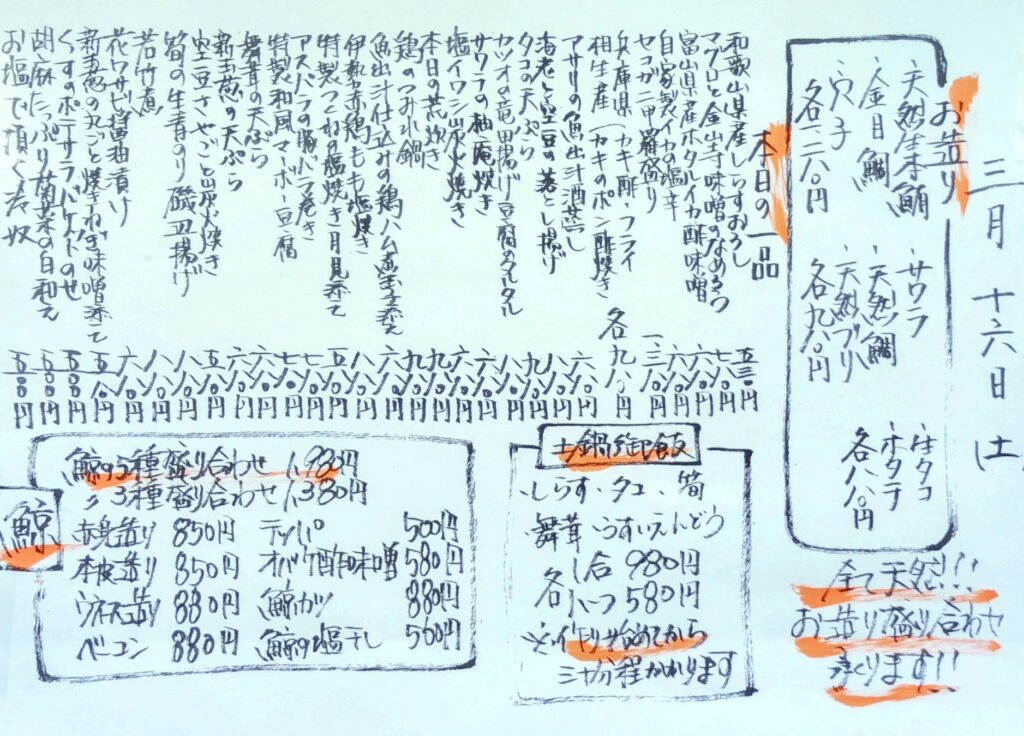 三月十六日 土
お造り
・天然生本鮪
・金目鯛
・穴子
各一、二八〇円
・サワラ
・天然鯛
・天然ブリ
各九八〇円
・生タコ
・ホタテ
各八八〇円
全て天然!!!
お造り盛り合わせ
承ります!!
本日の一品
和歌山県産しらすおろし 五三〇円
マグロと金山寺味噌のなめろう 七八〇円
富山県産ホタルイカ酢味噌 六八〇円
自家製イカの塩辛 六八〇円
セコガニ甲羅盛り 一、三八〇円
兵庫県(カキ酢・フライ
相生産(カキのポン酢焼き 各九八〇円
アサリの魚出汁酒蒸し 六八〇円
海老と空豆の落とし揚げ 八八〇円
タコの天ぷら 九八〇円
カツオの竜田揚げ豆腐のタルタル 八八〇円
サワラの柚庵焼き 六八〇円
塩イワシ炭火焼き 六八〇円
本日の荒炊き 九八〇円
鶏のつみれ小鍋 九八〇円
魚出汁仕込みの鶏ハム煮玉子添え 六八〇円
伊勢赤鶏もも塩焼き 八八〇円
特製つくねの塩焼き月見添えて 五八〇円
アスパラの豚バラ巻き 七八〇円
特製和風マーボー豆腐 七八〇円
舞茸の天ぷら 六八〇円
新玉葱の天ぷら 六八〇円
空豆さやごと炭火焼き 五八〇円
筍の生青のり磯辺揚げ 八八〇円
若竹煮 八八〇円
花ワサビ醤油漬け 六八〇円
新玉葱の丸ごと焼きねぎ味噌添えて 五八〇円
くづすのポテサラバゲットのせ 五八〇円
胡麻たっぷり菊菜の白和え 五八〇円
お塩で頂く冷奴 五八〇円
土鍋御飯
・しらす・タコ・筍
・舞茸・うすいえんどう
各 一合 980円
各 ハーフ 580円
※作り始めてから
三十分程かかります
鯨
鯨の5種盛り合わせ 1,980円
〃 3種盛り合わせ 1,380円
赤身造り 850円
本皮造り 850円
ウネス造り 880円
ベーコン 880円
テッパ 500円
オバケ酢味噌 580円
鯨カツ 880円
鯨の塩干し 500円